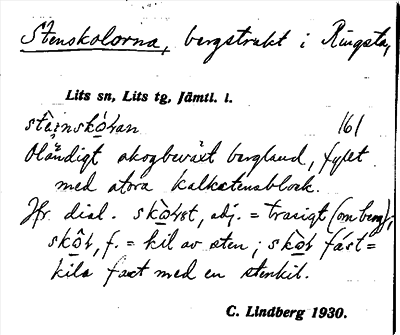 Stenskolorna, bergstrakt i Ringsta,
Lits sn, Lits tg, Jämtl. l.
stęi̯nskò̱ɫan 161
Oländigt skogbeväxt bergland, fyllt
med stora kalkstensblock.
Jfr dial. skò̱ɫot, adj. = trasigt (om berg),
skò̱ɫ, f. = kil av sten; skò̱ɫ fast =
kila fast med en stenkil.
C. Lindberg 1930.